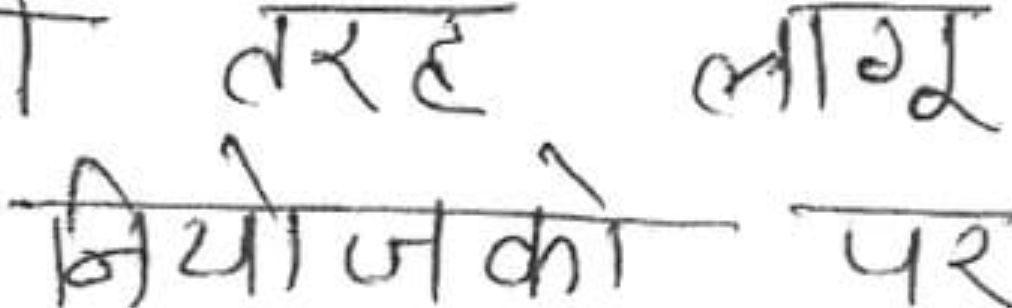 तरह लागू
नियोजको पर